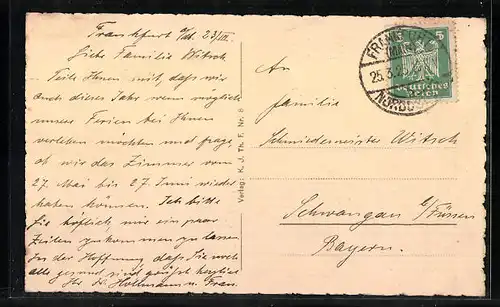 Frankfurt a/M. 23/III.
Liebe Familie Witsch
Teile Ihnen mit, daß wir
auch dieses Jahr wenn möglich
unsere Ferien bei Ihnen
verleben möchten und frage,
ob wir das Zimmer vom
27. Mai bis 27. Juni wieder
haben können. Ich bitte
Sie höflich, mir ein paar
Zeilen zukommen zu lassen
In der Hoffnung, daß Sie noch
alle gesund sind grüßt herzlich
Hollmann u. Frau.
Verlag: K. J. Th. F. Nr. 8
An
Familie
Schmiedemeister Witsch
Schwangau b/Füssen
Bayern.
FRANKFURT
(MAIN)
25.3.
5
Deutsches
Reich